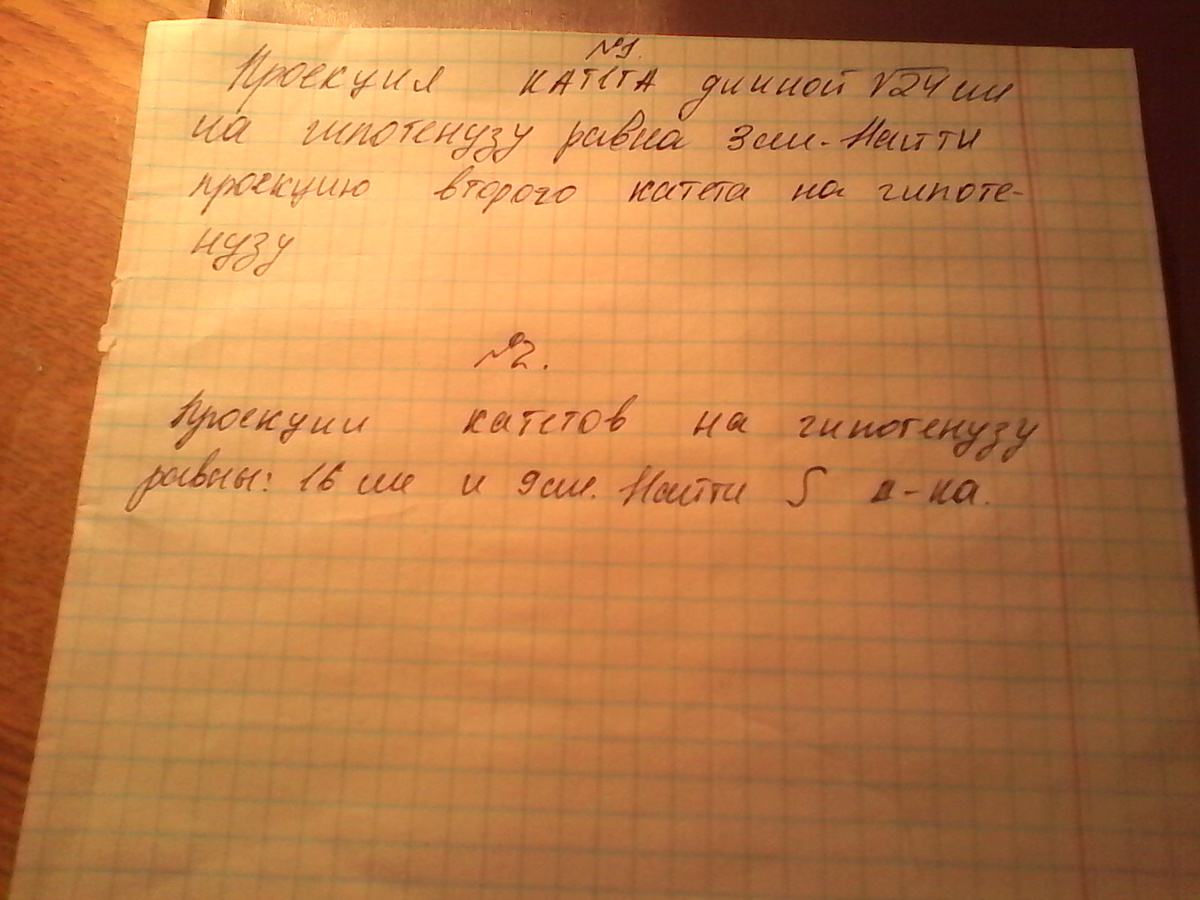 №1.
Проекция катета длинной √24 см
на гипотенузу равна 3 см. Найти
проекцию второго катета на гипоте-
нузу
№2.
Проекции катетов на гипотенузу
равны: 16 см и 9 см. Найти S Δ-ка.